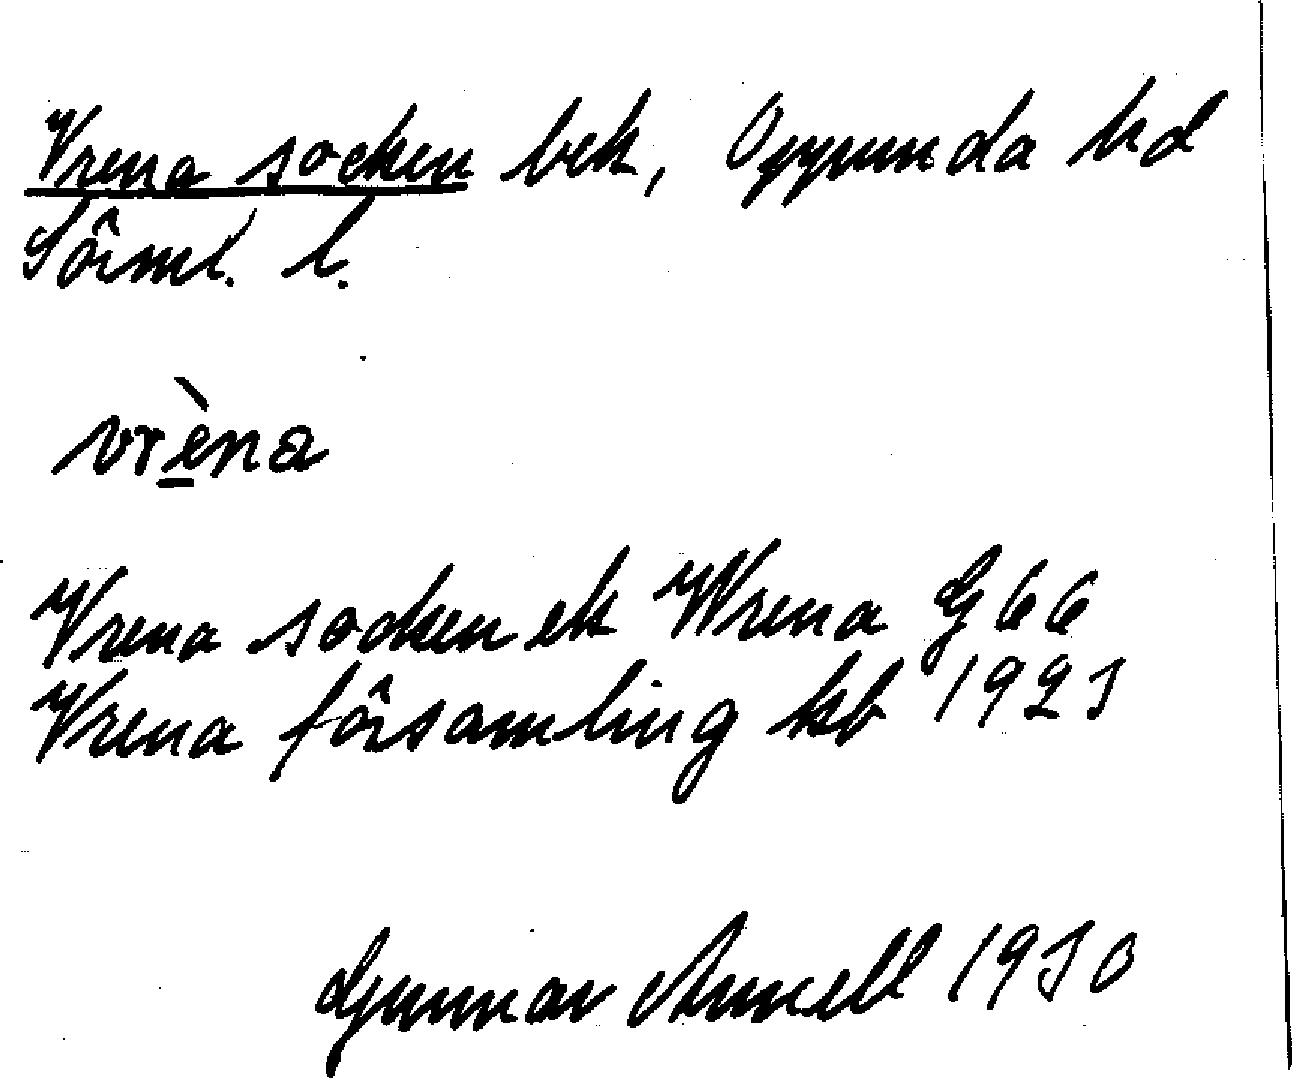 Vrena socken bek, Oppunda hd
Sörml. l.
vrèna
Vrena socken ek Wrena G 66
Vrena församling kb 1925
Gunnar Annell 1930